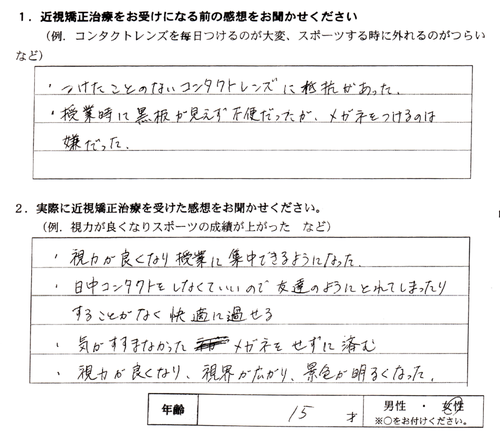 1．近視矯正治療をお受けになる前の感想をお聞かせください
（例．コンタクトレンズを毎日つけるのが大変、スポーツする時に外れるのがつらい
など）
・つけたことのないコンタクトレンズに抵抗があった．
・授業時に黒板が見えず不便だったが、メガネをつけるのは
嫌だった．
2．実際に近視矯正治療を受けた感想をお聞かせください。
（例．視力が良くなりスポーツの成績が上がった　など）
・視力が良くなり授業に集中できるようになった．
・日中コンタクトをしなくていいので友達のようにとれてしまったり
することがなく快適に過せる
・気がすすまなかった メガネをせずに済む
・視力が良くなり、視界が広がり、景色が明るくなった．
年齢　15 才　男性 ・ 女性
※○をお付けください。